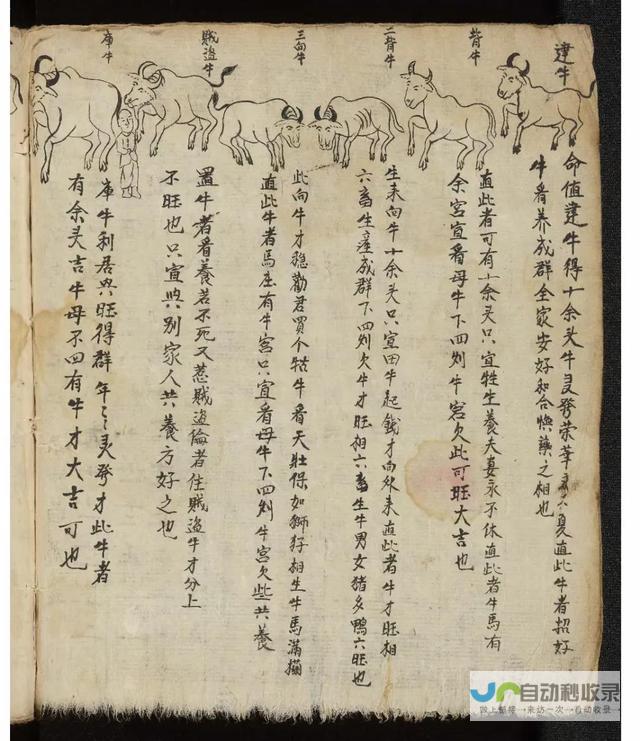 建牛
命值建牛得十余头牛灵发荣华直此牛者招好
牛看养成群全家安好和合怏药之相也
背牛
直此者可有十余头只宜牲生养夫妻永不休直此者牛馬有
余宮宜看母牛下四则牛宮欠此可旺大吉也
二背牛
生来向牛十余头只宜田牛起钱才向外来直此者牛才旺相
六畜生産成群下四则欠牛才旺相六畜生牛男女猪多鴨六旺也
三向牛
此向牛才穏勸君買个牯牛看天壮保如獅狩相生牛馬滿
直此牛者馬在有牛宮只宜看母牛下四则牛宮欠些共養
賊盗牛
置牛者看養若不死又惹賊盗倫者住賊盗牛才分上
不旺也只宜與别家人共養方好之也
庫牛
庫牛利居興旺得群年々灵發才此牛者
有余灵吉牛母不四有牛才大吉可也
自动秒收录
网上链接→来访一次→自动收录